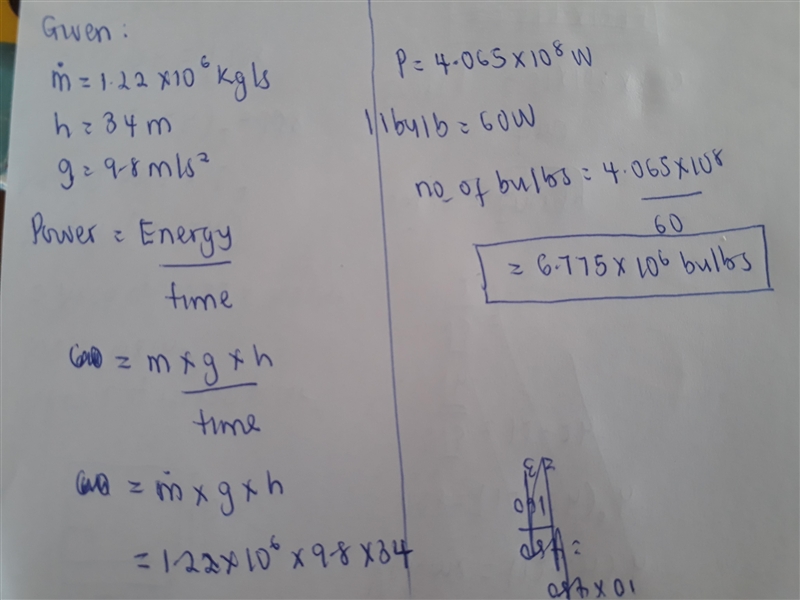 Given:
ṁ = 1.22 × 10⁶ Kg/s
h = 34 m
g = 9.8 m/s²
Power = Energy
time
= m × g × h
time
= ṁ × g × h
= 1.22 × 10⁶ × 9.8 × 34
P = 4.065 × 10⁸ W
1 bulb = 60W
no. of bulbs = 4.065 × 10⁸
60
= 6.775 × 10⁶ bulbs